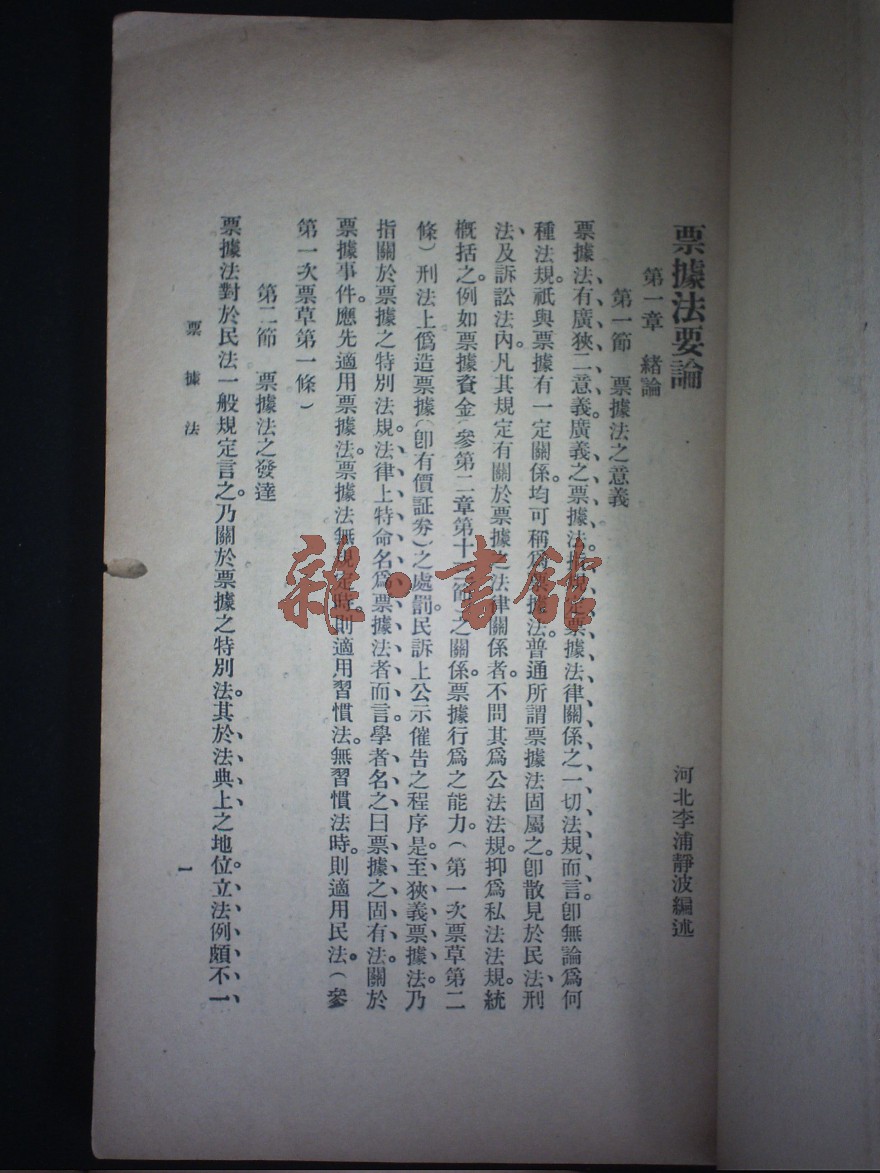 票據法要論
河北李浦靜波編述
第一章　緒論
第一節　票據法之意義
票據法有廣狹二意義。廣義之票據法。指規定票據法律關係之一切法規而言。卽無論爲何
種法規。祇與票據有一定關係。均可稱爲票據法。普通所謂票據法固屬之。卽散見於民法、刑
法、及訴訟法內。凡其規定有關於票據之法律關係者。不問其爲公法法規。抑爲私法法規。統
概括之。例如票據資金(參第二章第十節)之關係。票據行爲之能力。(第一次票草第二
條)刑法上僞造票據(卽有價証劵)之處罰。民訴上公示催告之程序。是。至狹義票據法。乃
指關於票據之特別法規。法律上特命名爲票據法者而言。學者名之曰票據之固有法。關於
票據事件。應先適用票據法。票據法無規定時。則適用習慣法。無習慣法時。則適用民法。(參
第一次票草第一條)
第二節　票據法之發達
票據法對於民法一般規定言之。乃關於票據之特別法。其於法典上之地位。立法例頗不一
票據法
一
雜·書館